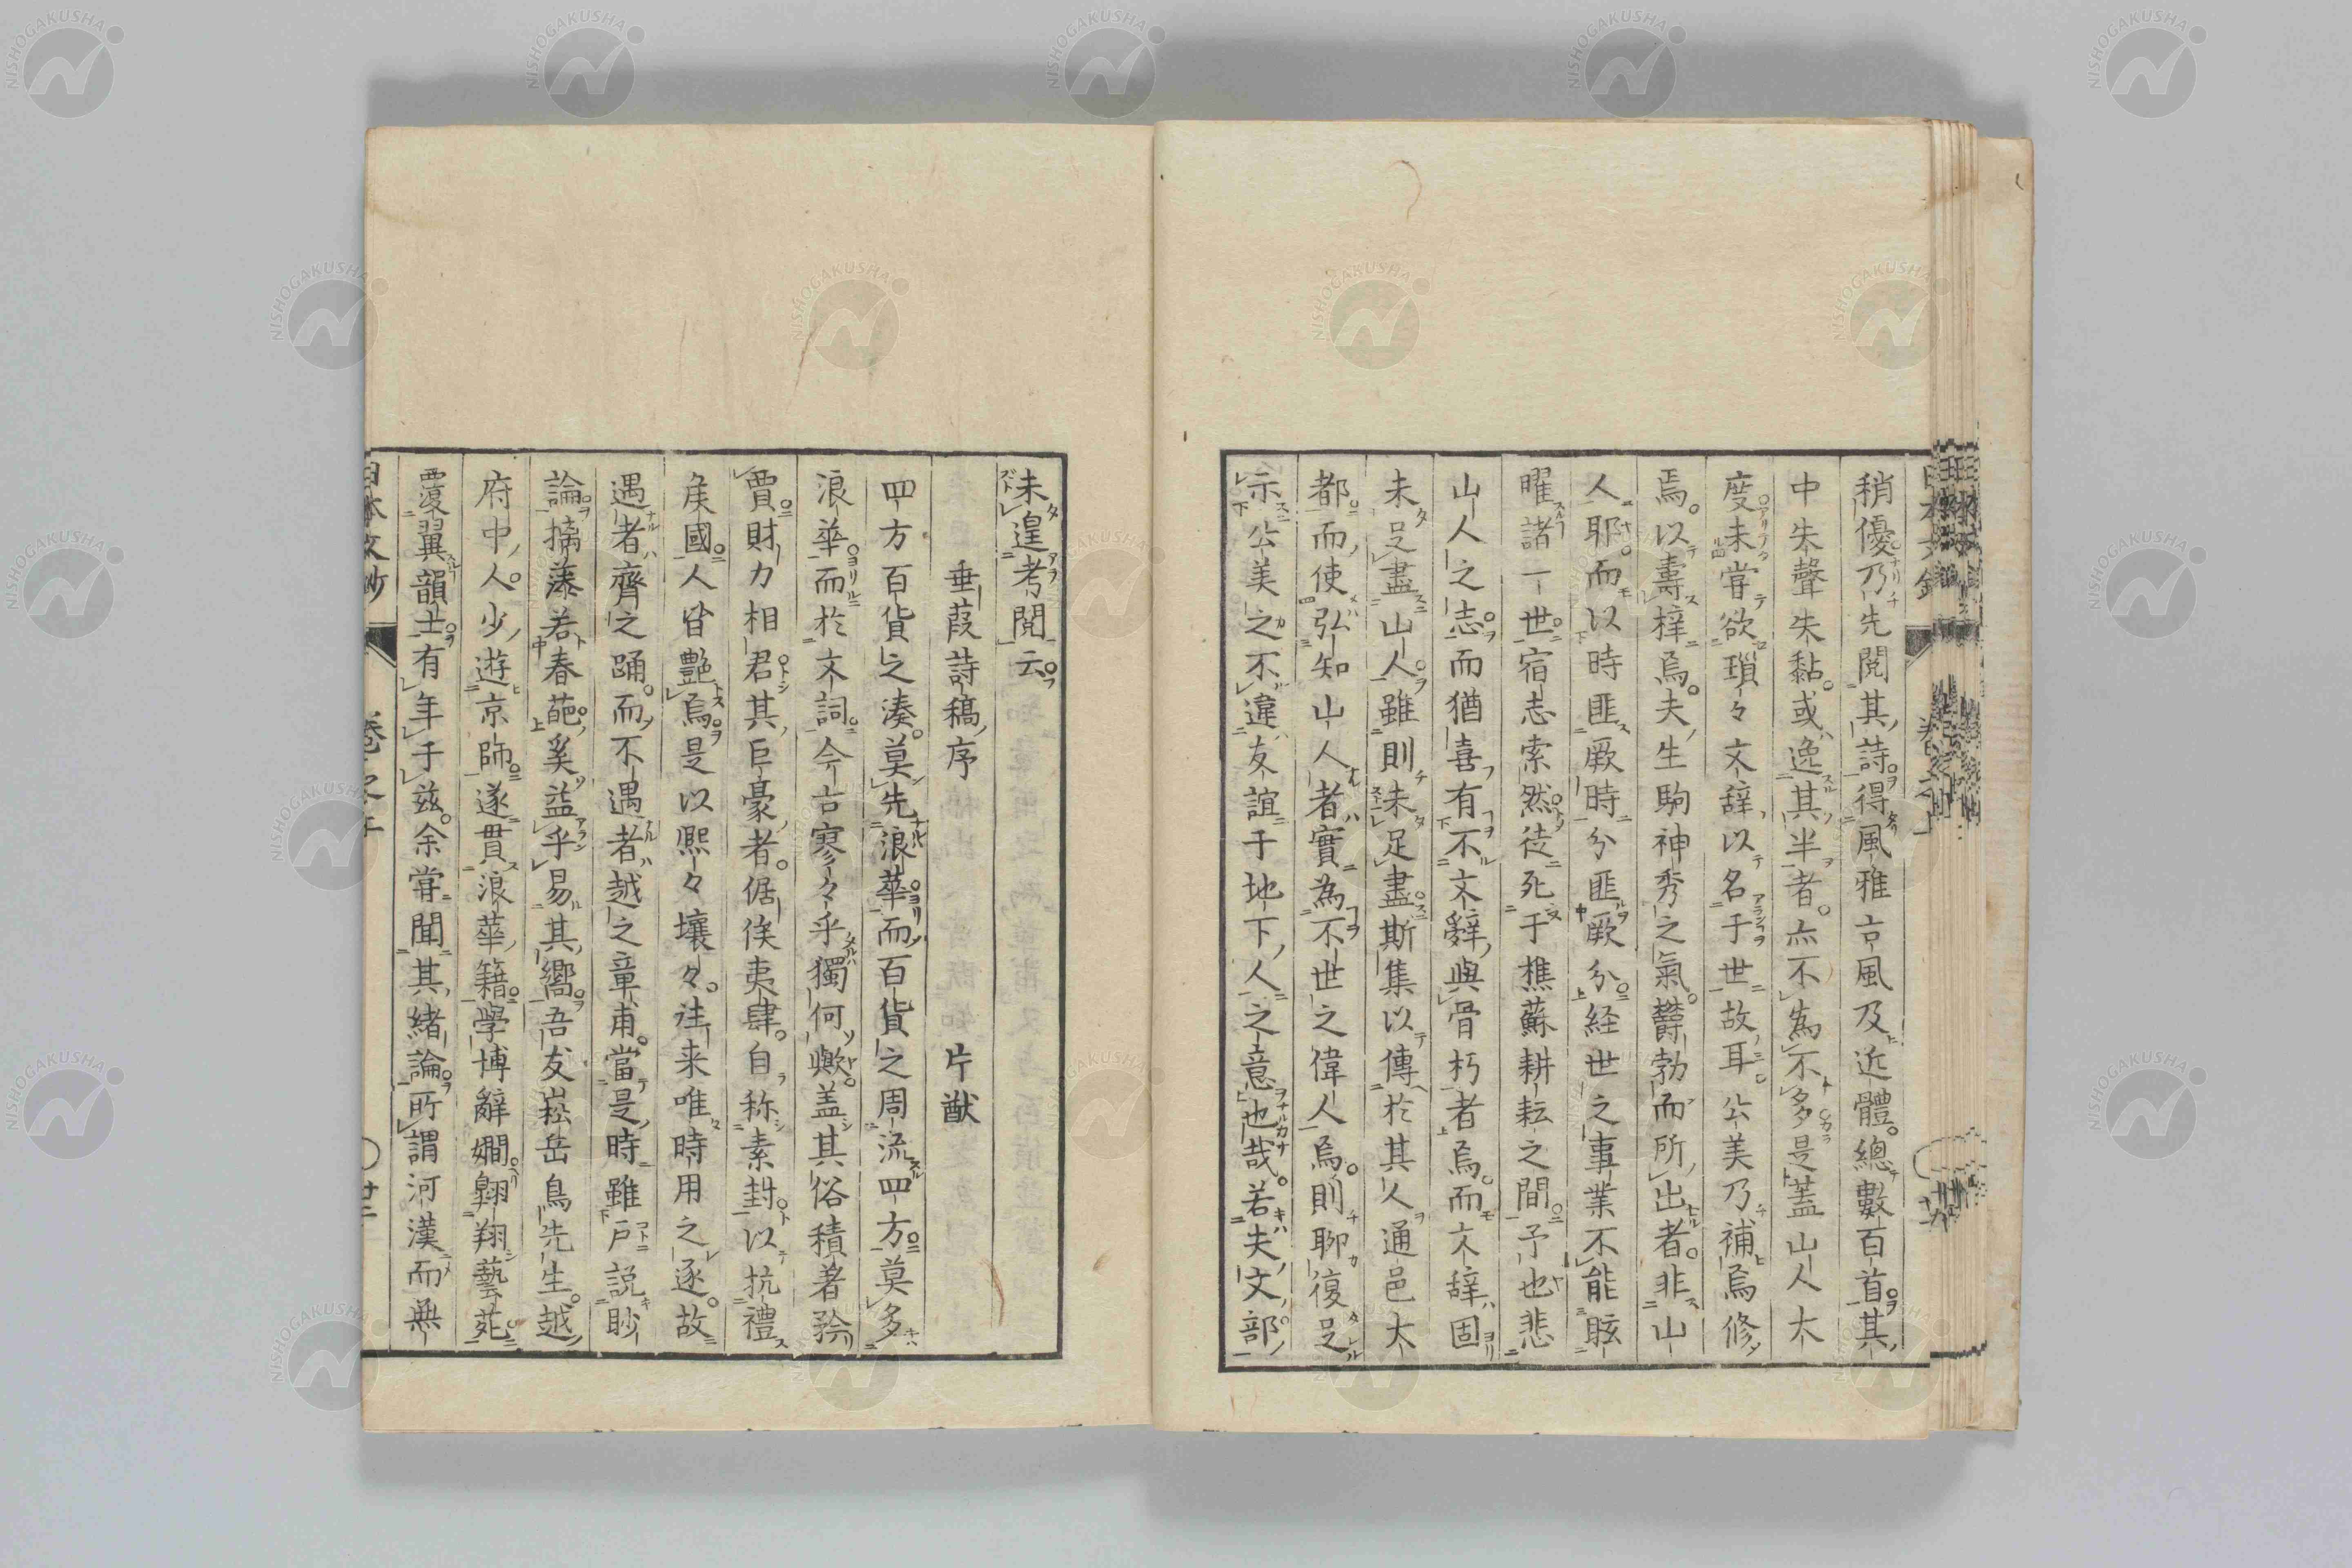 稍優乃先閱其詩得風雅古風及近體。總數百首其
中朱聲朱黏。或逸其半者。亦不為不多是蓋山人大
度未嘗欲瑣々文辞以名于世故耳公美乃補焉修
焉。以壽梓焉。夫生駒神秀之氣。鬱勃而所出者。非山
人耶。而以時匪厥時分匪厥分経世之事業不能眩
曜諸一世宿志索然徒死于樵蘇耕耘之間予也悲
山人之志而猶喜有不文辭與骨朽者焉。而文辞固
未足盡山人雖則未足盡斯集以傳於其人通邑大
都而使弘知山人者實為不世之偉人焉。則聊復足
示公美之不違友誼于地下人之意也哉。若夫文部
未遑考閱云
垂葭詩稿序 片猷
四方百貨之湊。莫先浪華而百貨之周流四方莫多
浪華而於文詞今古寥々乎獨何歟。盖其俗積著矜
賈財力相君其巨豪者。倨傃夷肆。自称素封以抗禮
矦國人皆艷焉是以熙々壤々。往来唯時用之逐。故
遇者齊之踊。而不遇者越之章甫。當是時雖戶説眇
論摛藻若春葩奚益乎易其嚮吾友崧岳鳥先生。越
府中人。少遊京師遂貫浪華籍學博辭嫺翺翔藝苑
覆翼韻士有年于茲。余甞聞其緒論所謂河漢而無